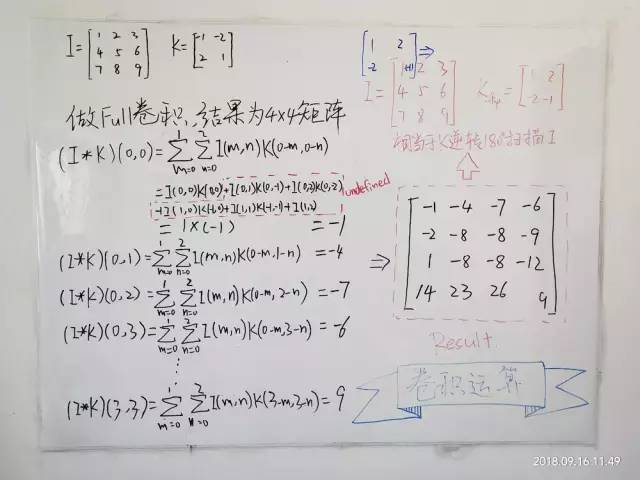 I=[1 2 3
4 5 6
7 8 9] K=[-1 -2
2 1]
做Full卷积,结果为4×4矩阵
(I*K)(0,0)=∑m=0^1∑n=0^2 I(m,n)K(0-m,0-n)
=I(0,0)K(0,0)+I(0,1)K(0,-1)+I(0,2)K(0,2) undefined
+I(1,0)K(-1,0)+I(1,1)K(-1,-1)+I(1,2)
=1×(-1) =-1
(I*K)(0,1)=∑m=0^1∑n=0^2 I(m,n)K(0-m,1-n) =-4
(I*K)(0,2)=∑m=0^1∑n=0^2 I(m,n)K(0-m,2-n) =-7
(I*K)(0,3)=∑m=0^1∑n=0^2 I(m,n)K(0-m,3-n) =-6
⋮
(I*K)(3,3)=∑m=0^1∑n=0^2 I(m,n)K(3-m,3-n)=9
[1 2
-2 ⇒
I=[1 2 3
4 5 6
7 8 9] K flip=[1 2
-2 -1]
相当于K逆转180°扫描I
⇒ [-1 -4 -7 -6
-2 -8 -8 -9
1 -8 -8 -12
14 23 26 9]
Result.
卷积运算
2018.09.16 11:49